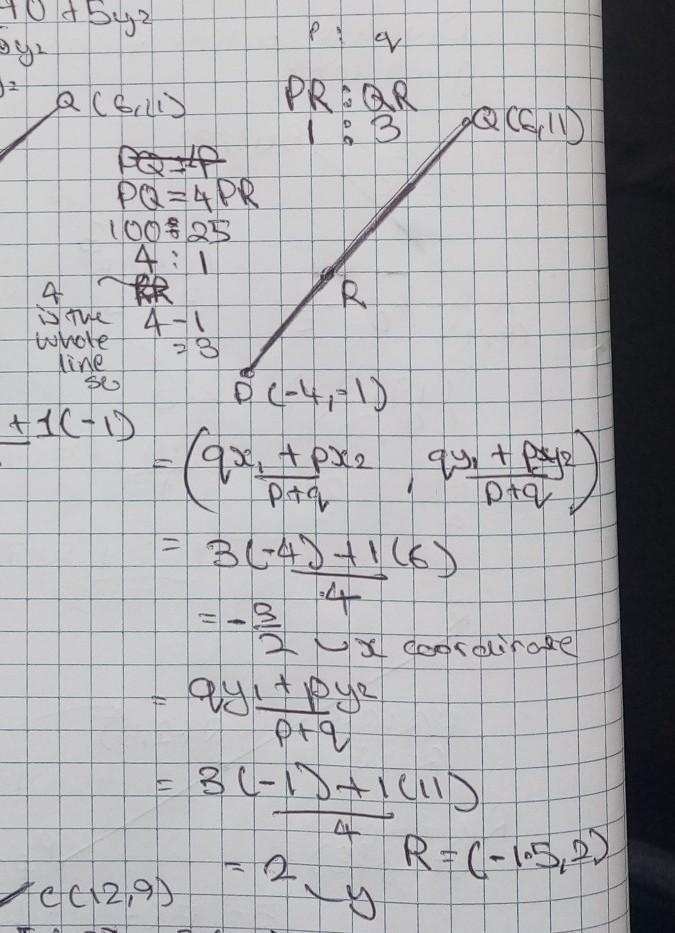 +5y₂
p : q
y₂
PR : QR
1 : 3
Q (6,11)
Q (6,11)
PQ = 4PR
100 : 25
4 : 1
4
is the
whole
line
so
4 - 1
= 3
R
P (-4,-1)
+ 1(-1)
= (qx₁ + px₂ / p+q , qy₁ + py₂ / p+q)
= 3(-4) + 1(6)
4
= - 3/2 x coordinate
= qy₁ + py₂
p+q
= 3(-1) + 1(11)
4
= 2 y
R = (-1.5, 2)
C (12,9)